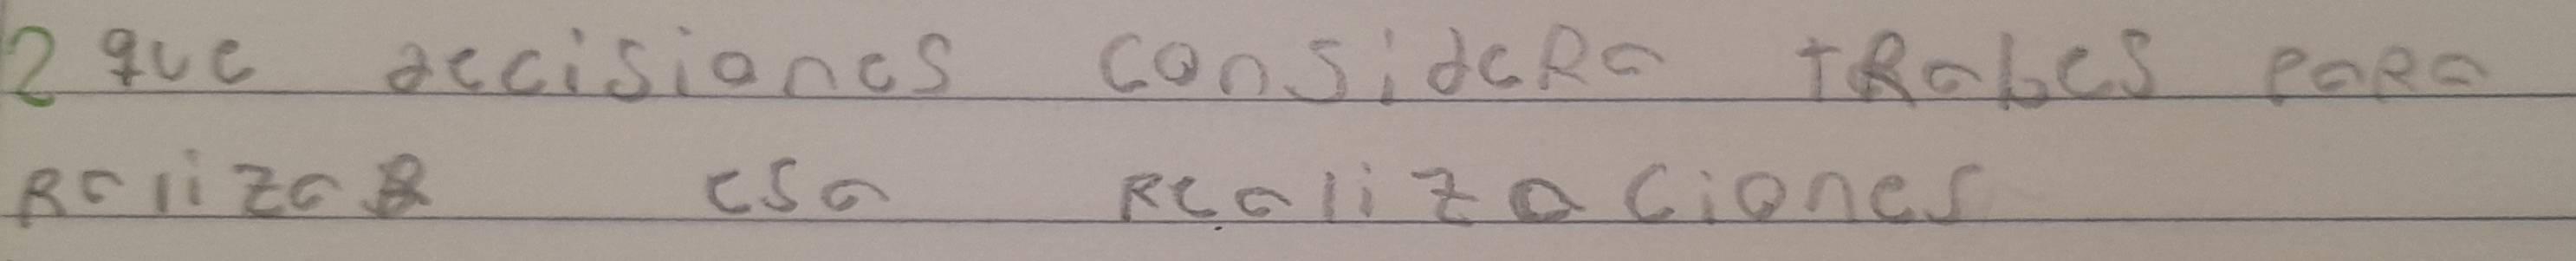 2 que decisiones consideRa tRabes paRa
RalizaR esa Realizaciones